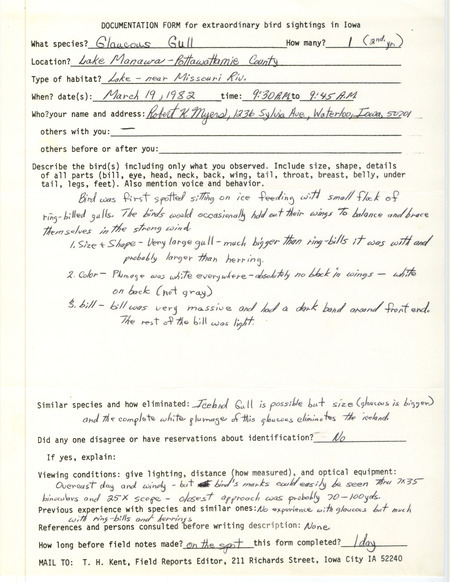 DOCUMENTATION FORM for extraordinary bird sightings in Iowa
What species? Glaucous Gull How many? 1 (2nd yr.)
Location? Lake Manawa - Pottawattamie County
Type of habitat? Lake - near Missouri Riv.
When? date(s): March 19, 1982 time: 9:30 AM to 9:45 AM
Who? your name and address: Robert K. Myers, 1236 Sylvia Ave., Waterloo, Iowa, 50701
others with you: —
others before or after you:
Describe the bird(s) including only what you observed. Include size, shape, details
of all parts (bill, eye, head, neck, back, wing, tail, throat, breast, belly, under
tail, legs, feet). Also mention voice and behavior.
Bird was first spotted sitting on ice feeding with small flock of
ring-billed gulls. The birds would occasionally hold out their wings to balance and brace
themselves in the strong wind.
1. Size & Shape - Very large gull - much bigger than ring-bills it was with and
probably larger than herring.
2. Color - Plumage was white everywhere - absolutely no black in wings - white
on back (not gray)
3. bill - bill was very massive and had a dark band around front end.
The rest of the bill was light.
Similar species and how eliminated: Iceland Gull is possible but size (glaucous is bigger)
and the complete white plumage of this glaucous eliminates the iceland.
Did any one disagree or have reservations about identification? No
If yes, explain:
Viewing conditions: give lighting, distance (how measured), and optical equipment:
Overcast day and windy - but bird's marks could easily be seen thru 7X35
binoculars and 25X scope - closest approach was probably 70-100 yds.
Previous experience with species and similar ones: No experience with glaucous but much
with ring-bills and herrings
References and persons consulted before writing description: None
How long before field notes made? on the spot this form completed? 1 day
MAIL TO: T. H. Kent, Field Reports Editor, 211 Richards Street, Iowa City IA 52240